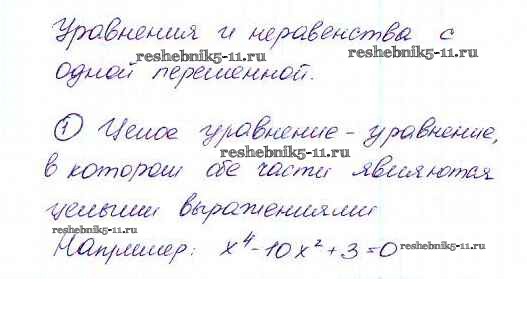 Уравнения и неравенства с
reshebnik5-11.ru
reshebnik5-11.ru
одной переменной.
① Целое уравнение - уравнение,
reshebnik5-11.ru
в котором обе части являются
целыми выражениями
reshebnik5-11.ru
Например: x⁴-10x²+3=0
reshebnik5-11.ru